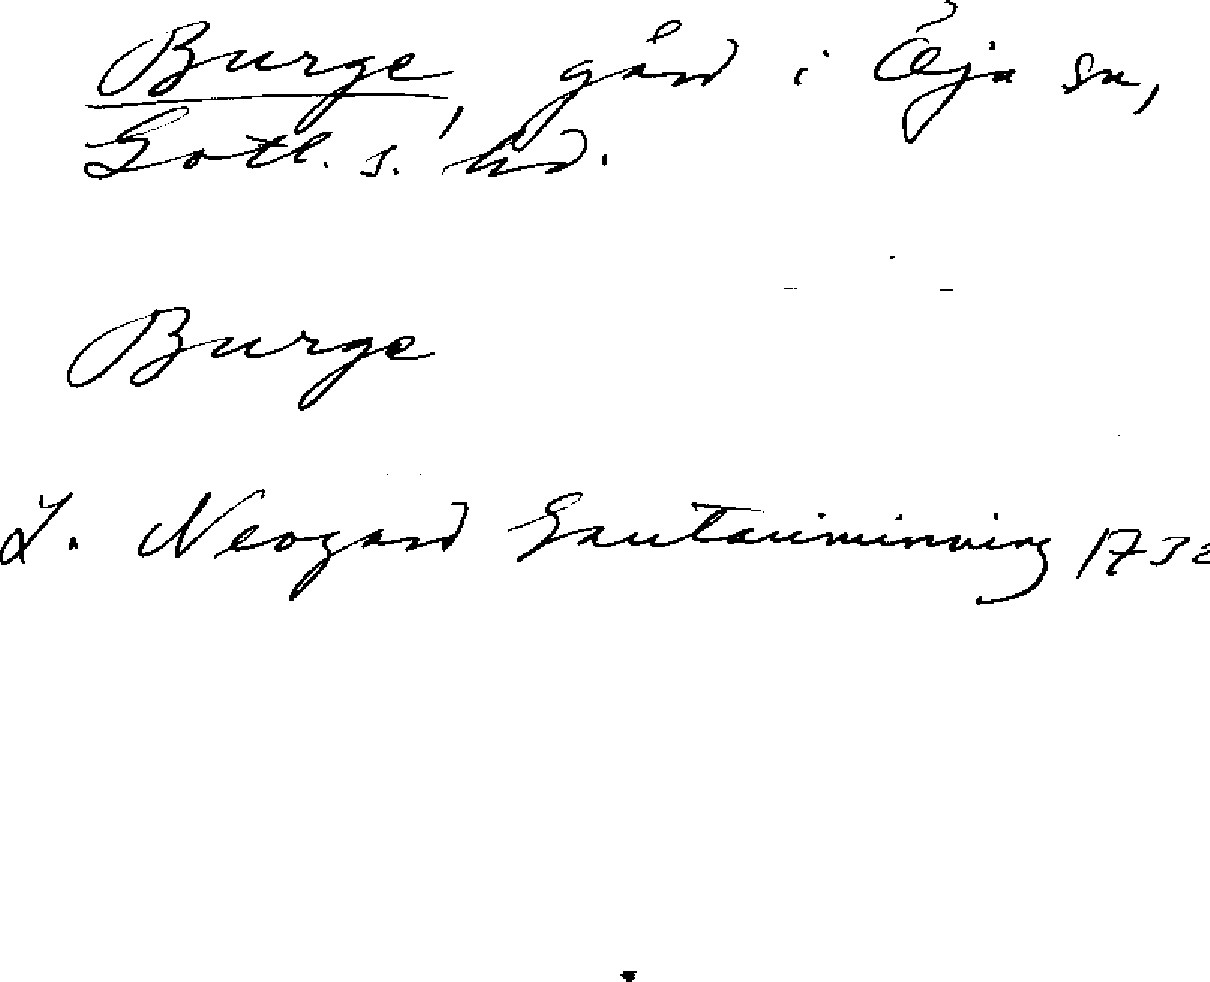 Burge, gård i Öja sn,
Gotl. s. hd.
Burge
L. Neogard Gautauminning 1732